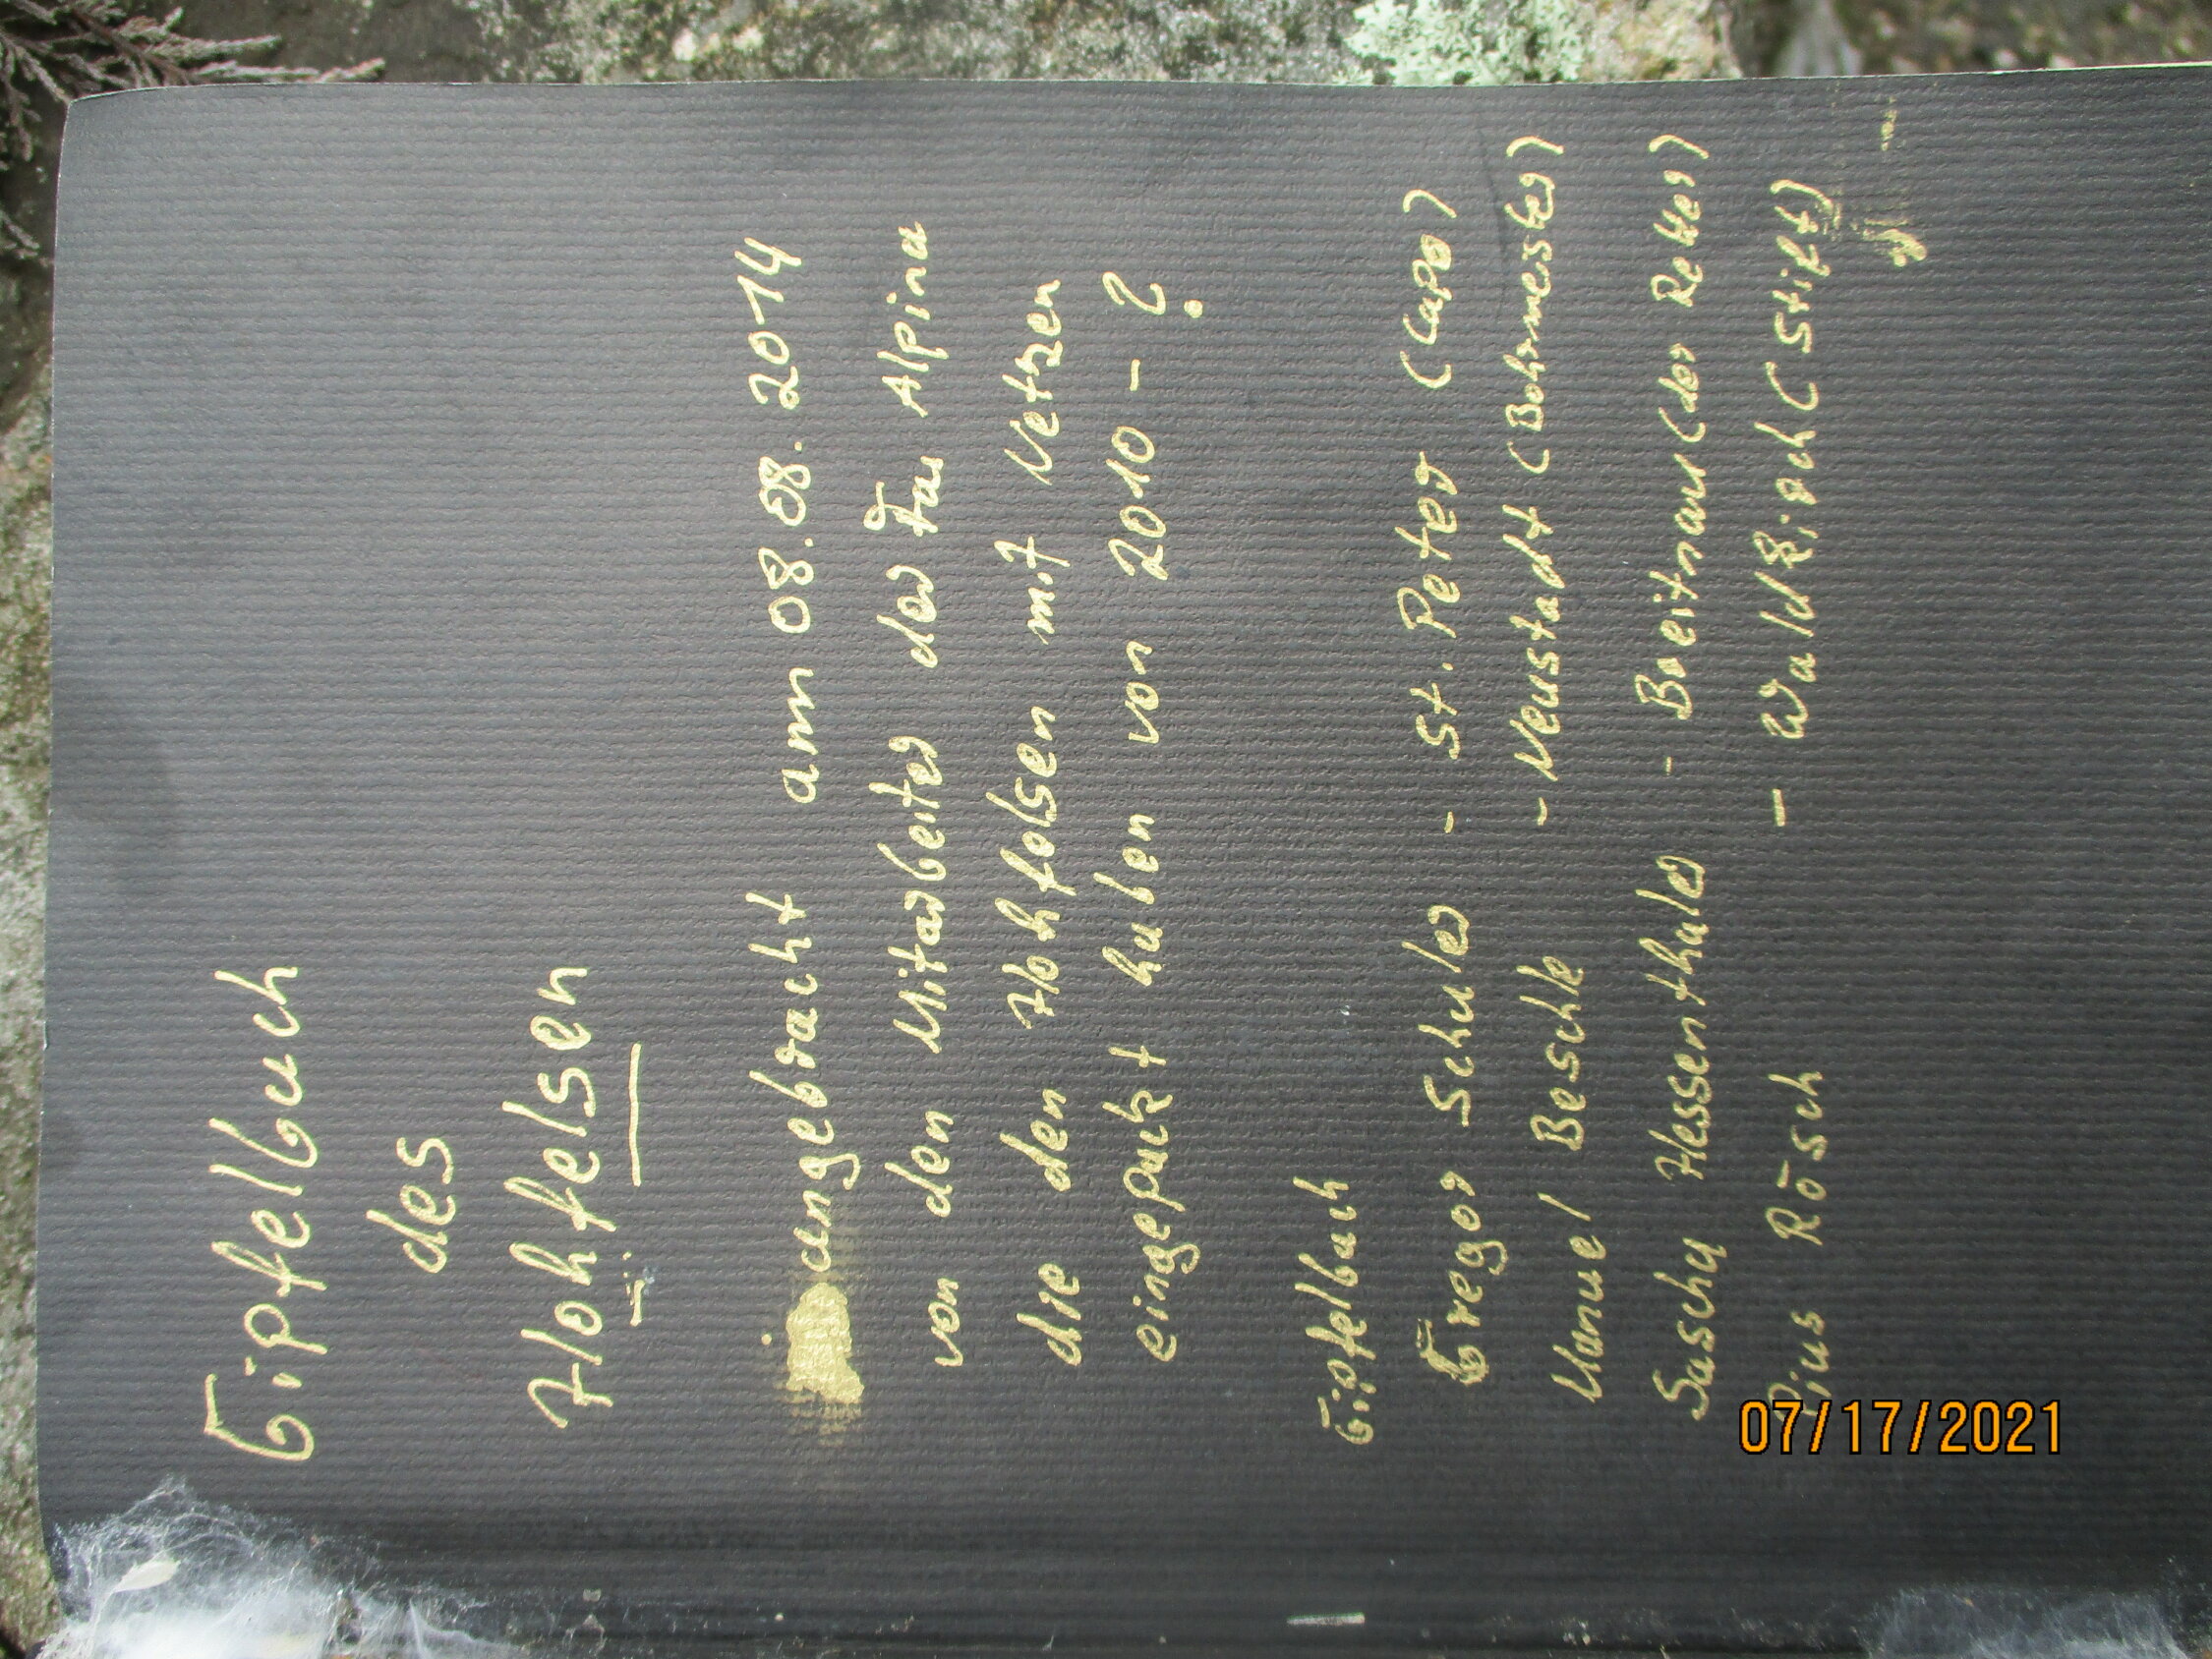 Gipfelbuch
des
Hohfelsen
angebracht am 08.08.2014
von den Mitarbeiter der Fa. Alpina
die den Hohfelsen mit Netzen
eingepackt haben von 2010 - ?
Gipfelbuch
Gregor Schuler - St. Peter (Capo)
Manuel Beschle - Neustadt (Bohrmeister)
Sascha Hessenthaler - Breitnau (der Retter)
Pius Rösch - Waldkirch (Stift)
07/17/2021